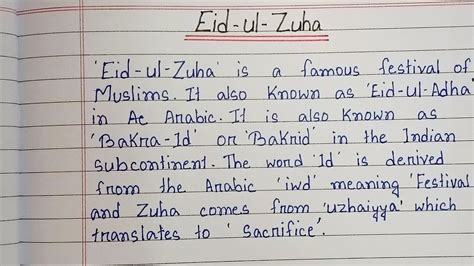 Eid-ul-Zuha
'Eid-ul-Zuha' is a famous festival of
Muslims. It also known as 'Eid-ul-Adha'
in Ac Arabic. It is also known as
'Bakra-Id' or 'Bakrid' in the Indian
subcontinent. The word 'Id' is derived
from the Arabic 'iwd' meaning 'Festival
and Zuha comes from 'uzhaiyya' which
translates to ' Sacrifice'.